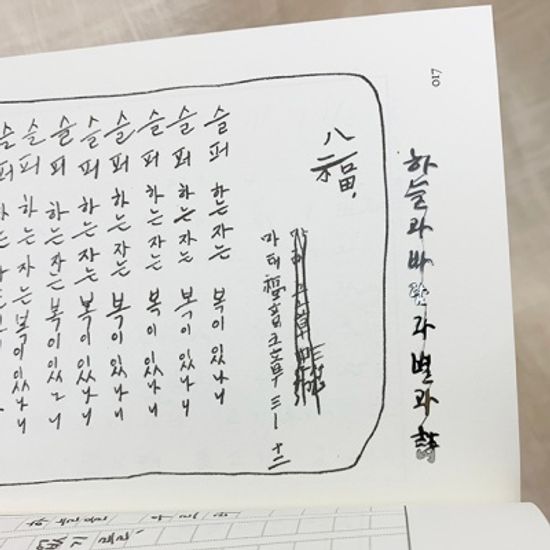 017
하늘과 바람과 별과 詩
八福
마태福音五章 三—十二
슬퍼 하는자는 복이있나니
슬퍼 하는자는 복이있나니
슬퍼 하는자는 복이있나니
슬퍼 하는자는 복이있나니
슬퍼 하는자는 복이있나니
슬퍼 하는자는 복이있나니
슬퍼 하는자는 복이있나니
슬퍼